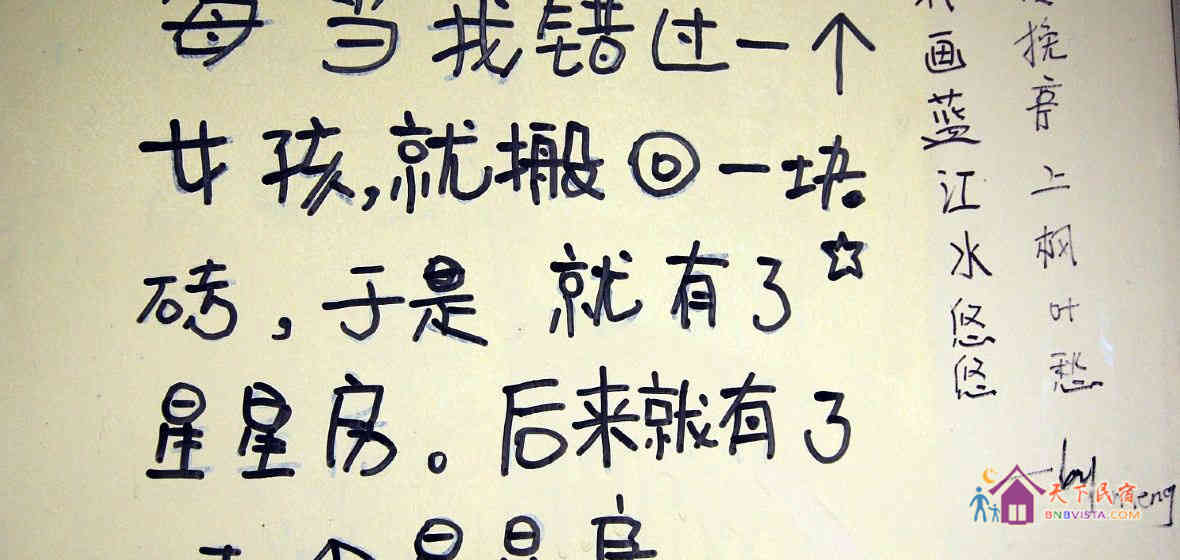 每当我错过一个
女孩,就搬回一块
砖,于是就有了☆
星星房。后来就有了
个星星房
画蓝江水悠悠
挽亭上枫叶愁
—by
天下民宿
BNBVISTA.COM